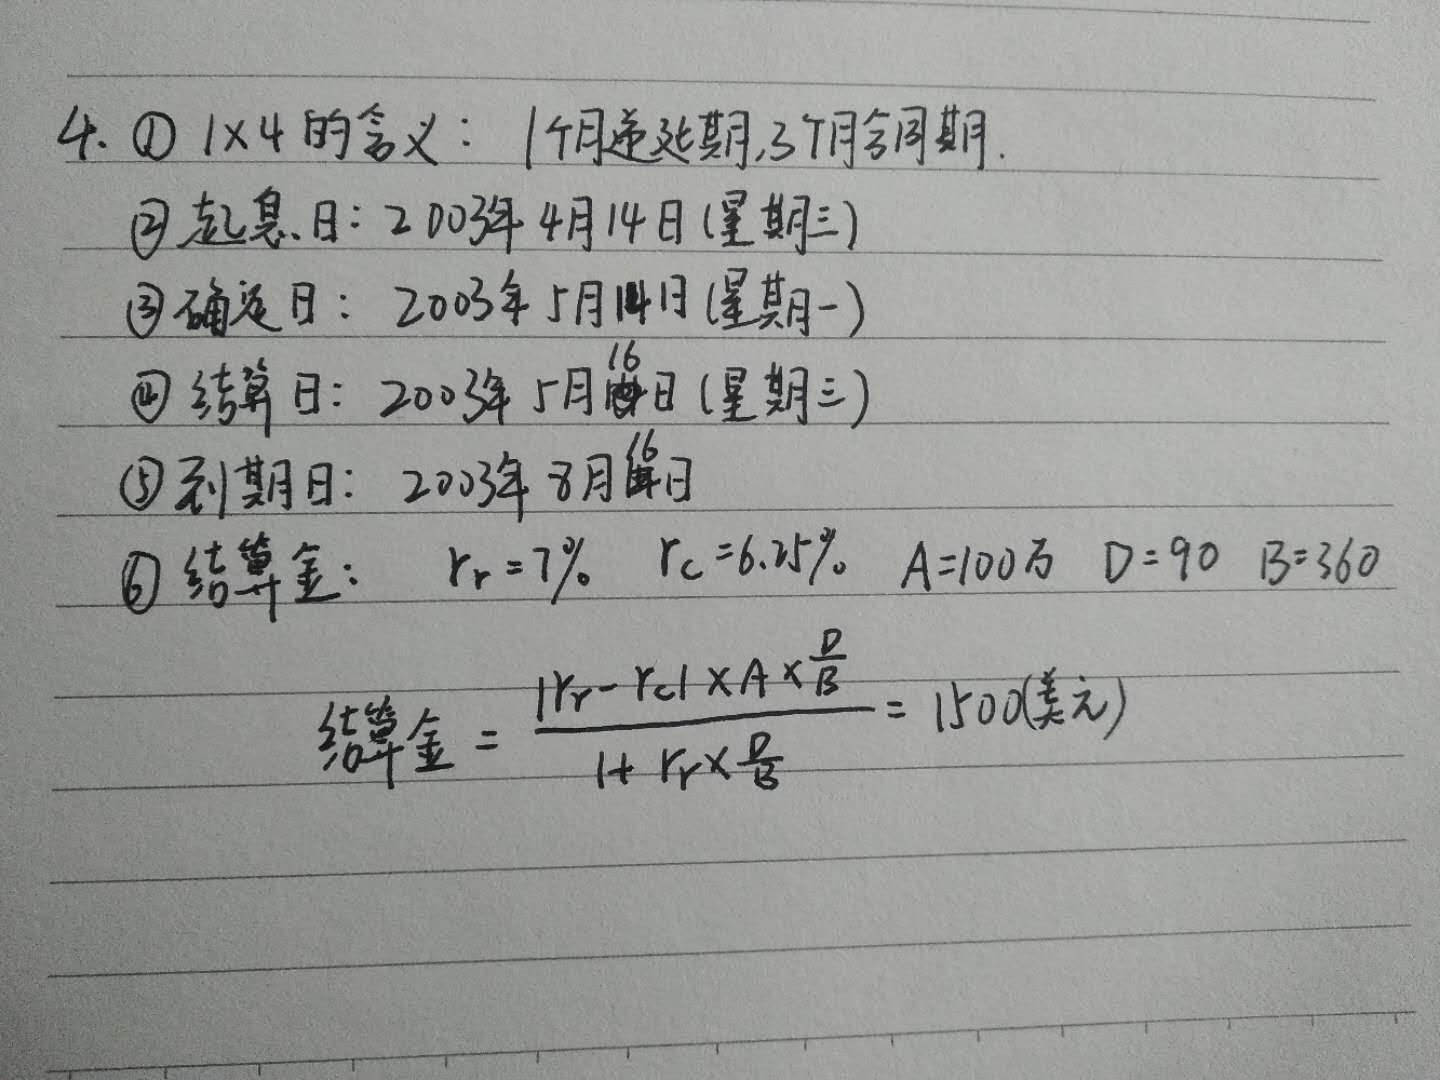 4. ① 1×4的含义: 1个月递延期,3个月合同期.
② 起息日: 2003年4月14日(星期三)
③ 确定日: 2003年5月14日(星期一)
④ 结算日: 2003年5月16日(星期三)
⑤ 到期日: 2003年8月16日
⑥ 结算金: rr=7% rc=6.25% A=100万 D=90 B=360
结算金 = |rr-rc|×A×D/B / 1+rr×D/B = 1500(美元)